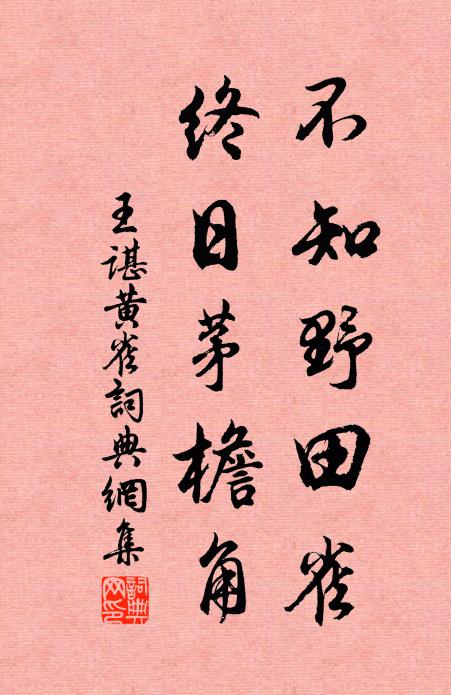 不知野田雀
终日茅檐角
王谌黄雀詞典網集
詞典网印